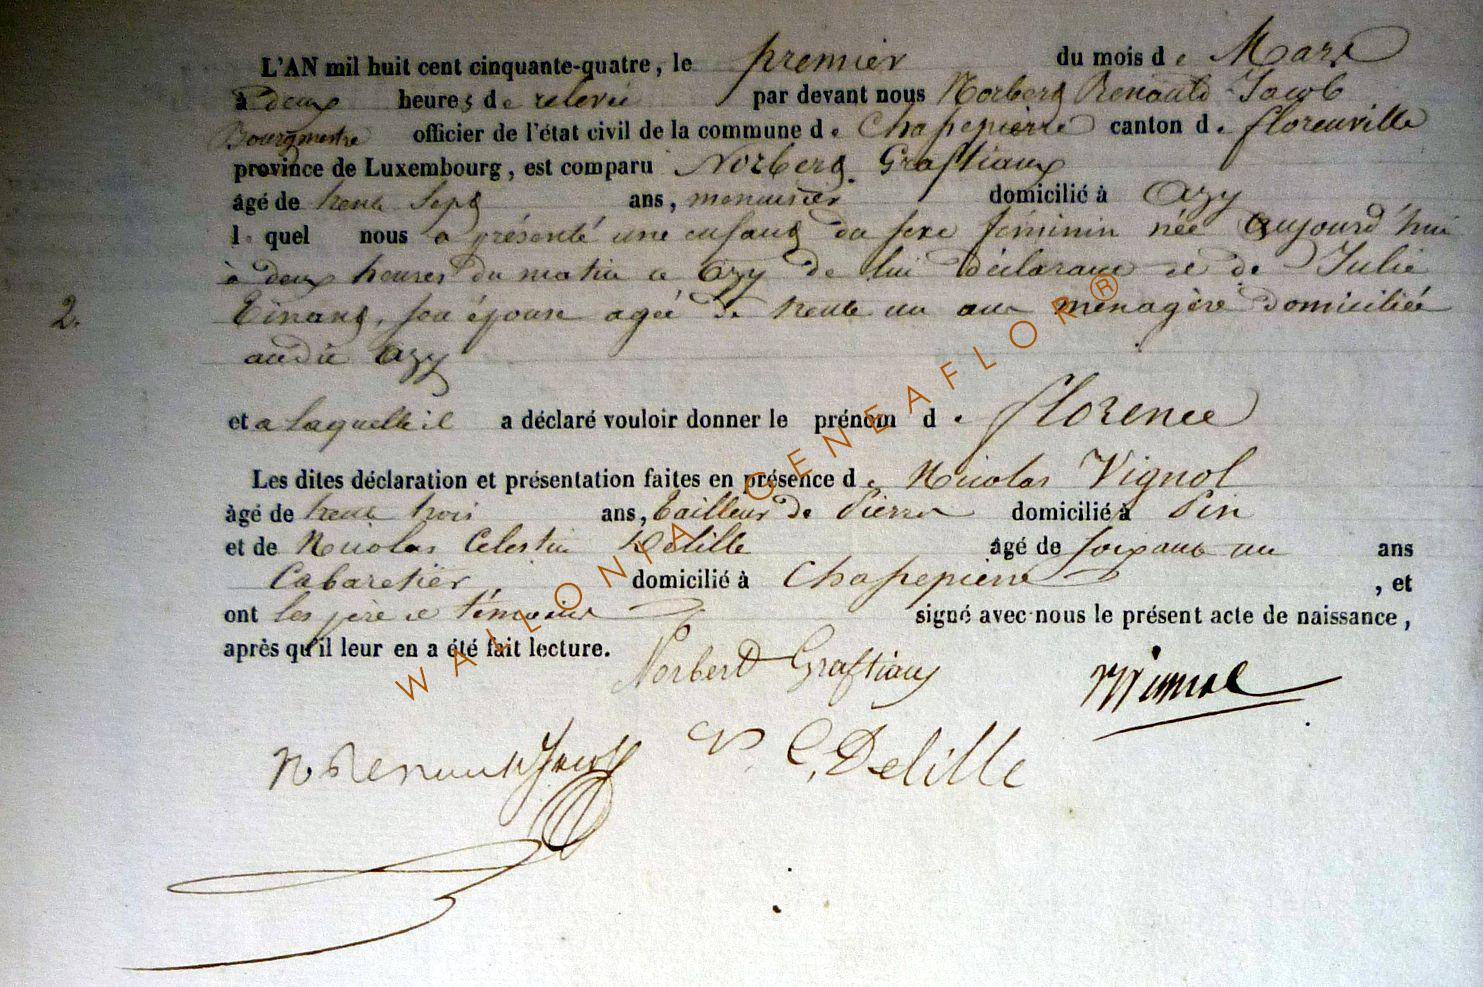 L'AN mil huit cent cinquante-quatre, le premier du mois de Mars
à deux heures de relevée par devant nous Norbert Renauld Jacob
Bourgmestre officier de l'état civil de la commune de Chassepierre canton de florenville
province de Luxembourg, est comparu Norbert Graftiaux
âgé de trente sept ans, menuisier domicilié à Azy
lequel nous a présenté une enfant du sexe féminin née aujourd'hui
à deux heures du matin à Azy de lui déclarant et de Julie
2.
son épouse agée de trente un ans ménagère domiciliée
audit Azy
et a laquelle il a déclaré vouloir donner le prénom de florence
Les dites déclaration et présentation faites en présence de Nicolas Vignol
âgé de trente trois ans, tailleur de Pierre domicilié à Pin
et de Nicolas Celestin Delille âgé de soixante un ans
Cabaretier domicilié à Chassepierre, et
ont les père et témoins signé avec nous le présent acte de naissance,
après qu'il leur en a été fait lecture.
Norbert Graftiaux
N Vignol
N Renauld Jacob
N. C. Delille
WALLONIA GENEAFLOR®